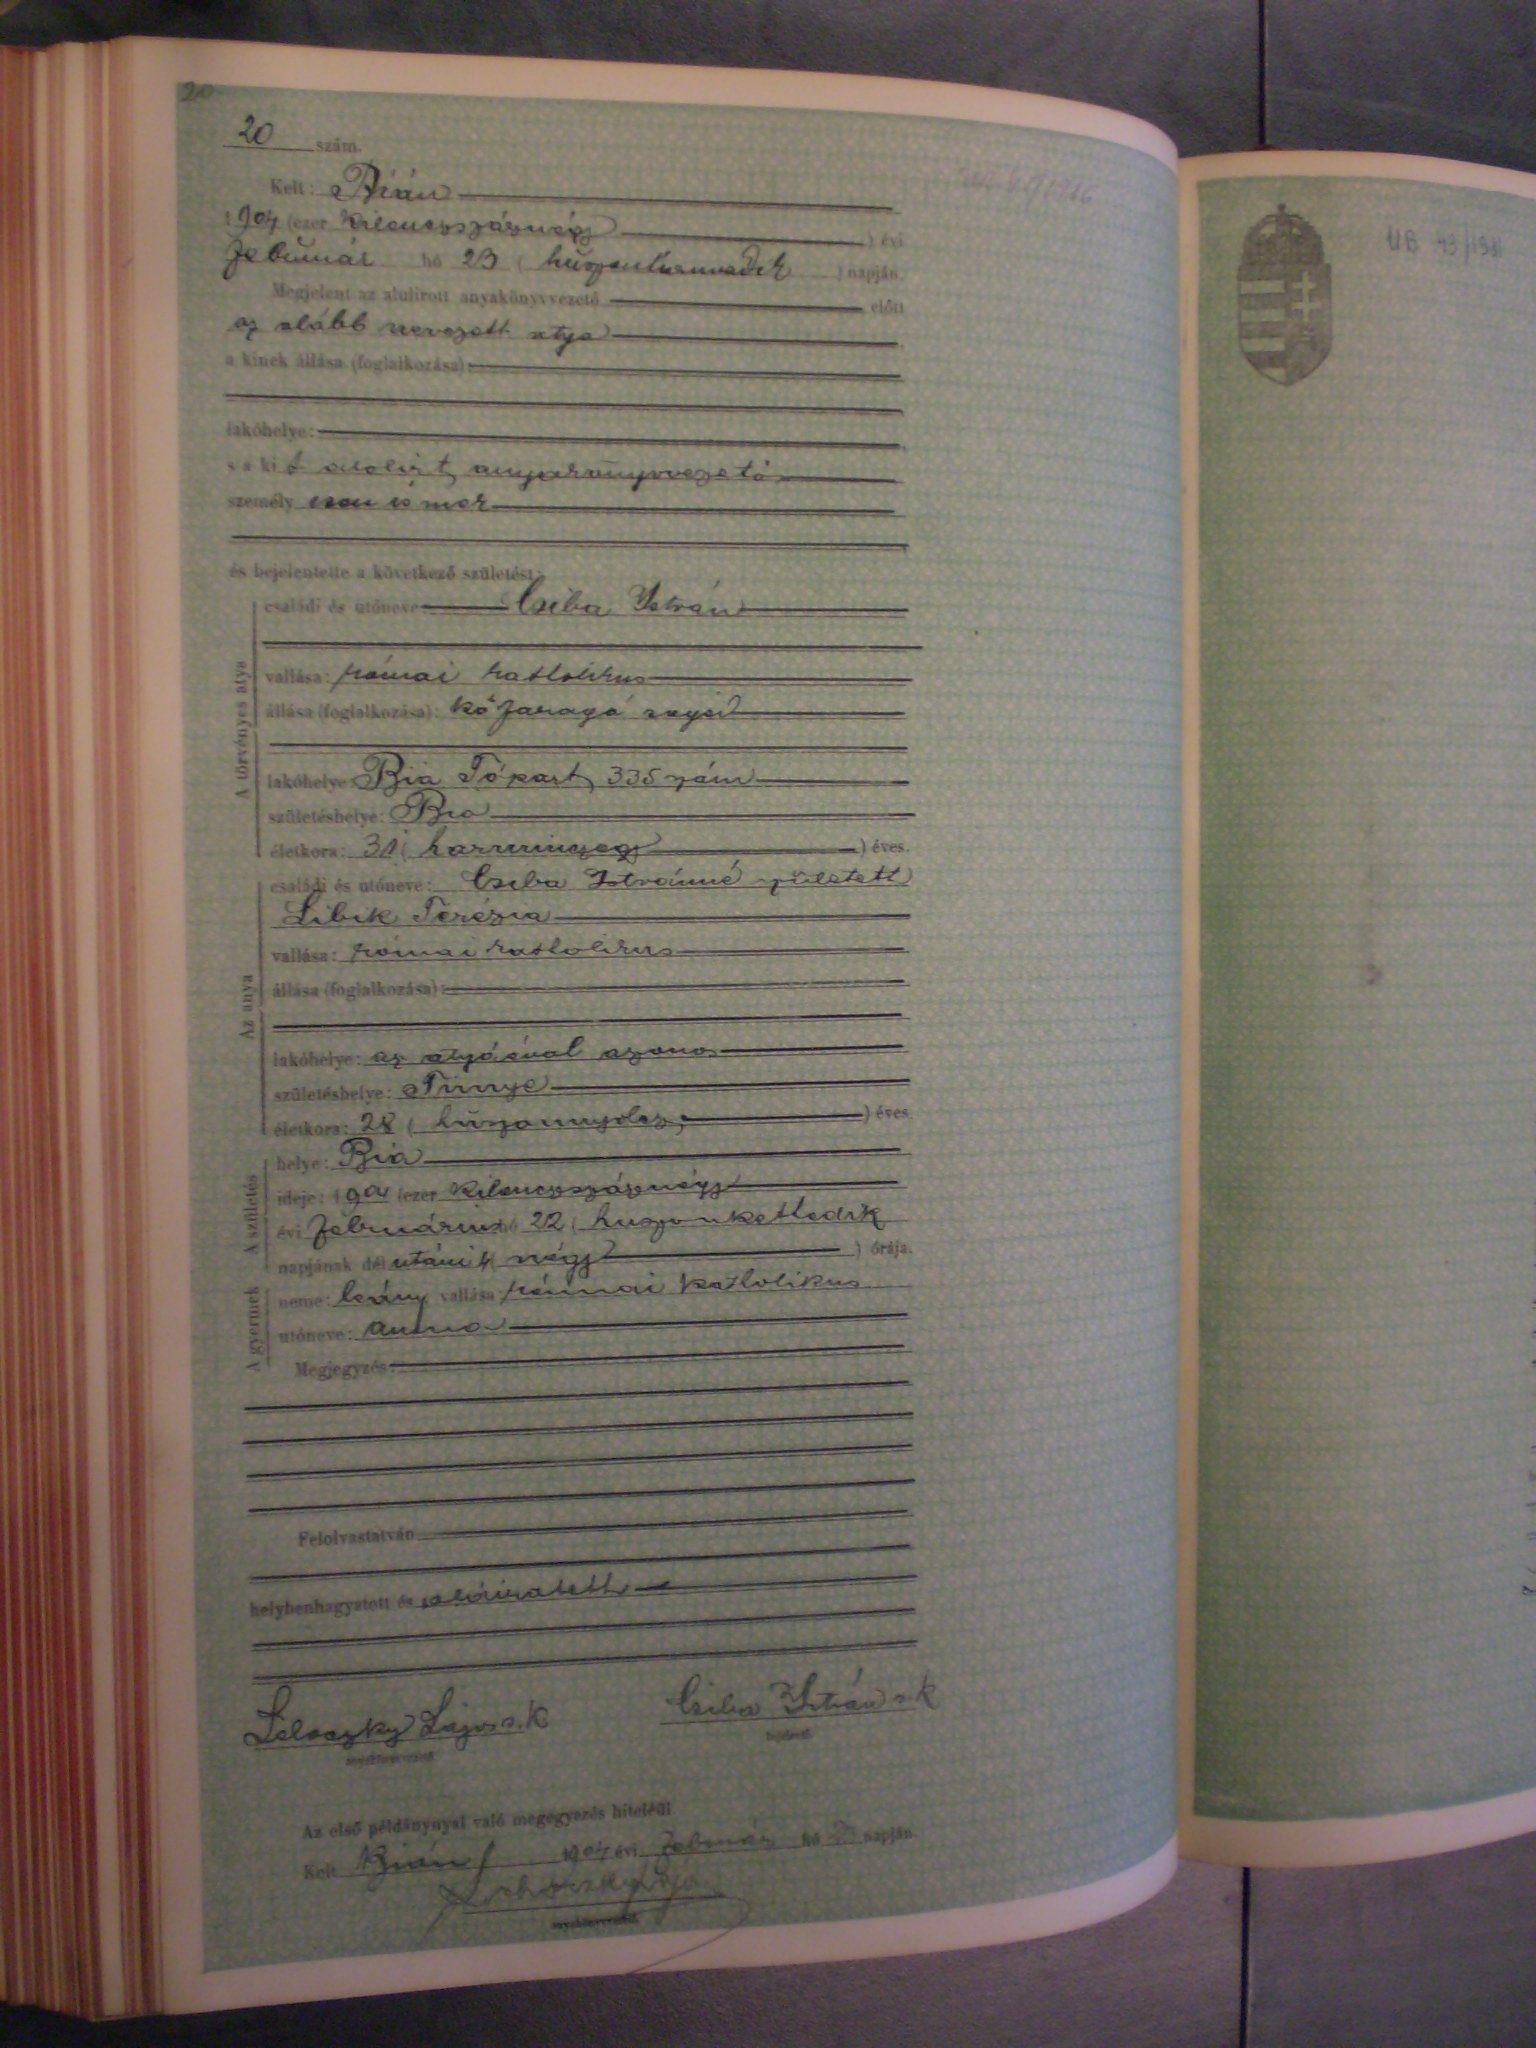 20
20 szám.
Kelt: Bián
1904 (ezer kilenczszáznégy) évi
Február hó 23 (huszonharmadik) napján.
Megjelent az alulírott anyakönyvvezető előtt
az alább nevezett atya
a kinek állása (foglalkozása):
lakóhelye:
s a kit alolirt anyakönyvvezető
személyesen ismer
és bejelentette a következő születést:
A törvényes atya
családi és utóneve Csiba István
vallása: római katholikus
állása (foglalkozása): kőfaragó segéd
lakóhelye: Bia Tópart 335 szám
születéshelye: Bia
életkora: 31 (harminczegy) éves.
Az anya
családi és utóneve: Csiba Istvánné született
Libik Terézia
vallása: római katholikus
állása (foglalkozása):
lakóhelye: az atyáéval azonos
születéshelye: Tinnye
életkora: 28 (huszonnyolcz) éves.
A születés
helye: Bia
ideje: 1904 (ezer kilenczszáznégy
évi Februárius hó 22 (huszonkettedik
napjának délutáni 4 (négy) órája.
A gyermek
neme: leány vallása: római katholikus
utóneve: Anna
Megjegyzés:
Felolvastatván
helybenhagyatott és aláiratott
Lajos s. k Csiba István s. k
anyakönyvvezető bejelentő
Az első példánynyal való megegyezés hiteléül
Kelt Bián 1904 évi Február hó napján.
anyakönyvvezető